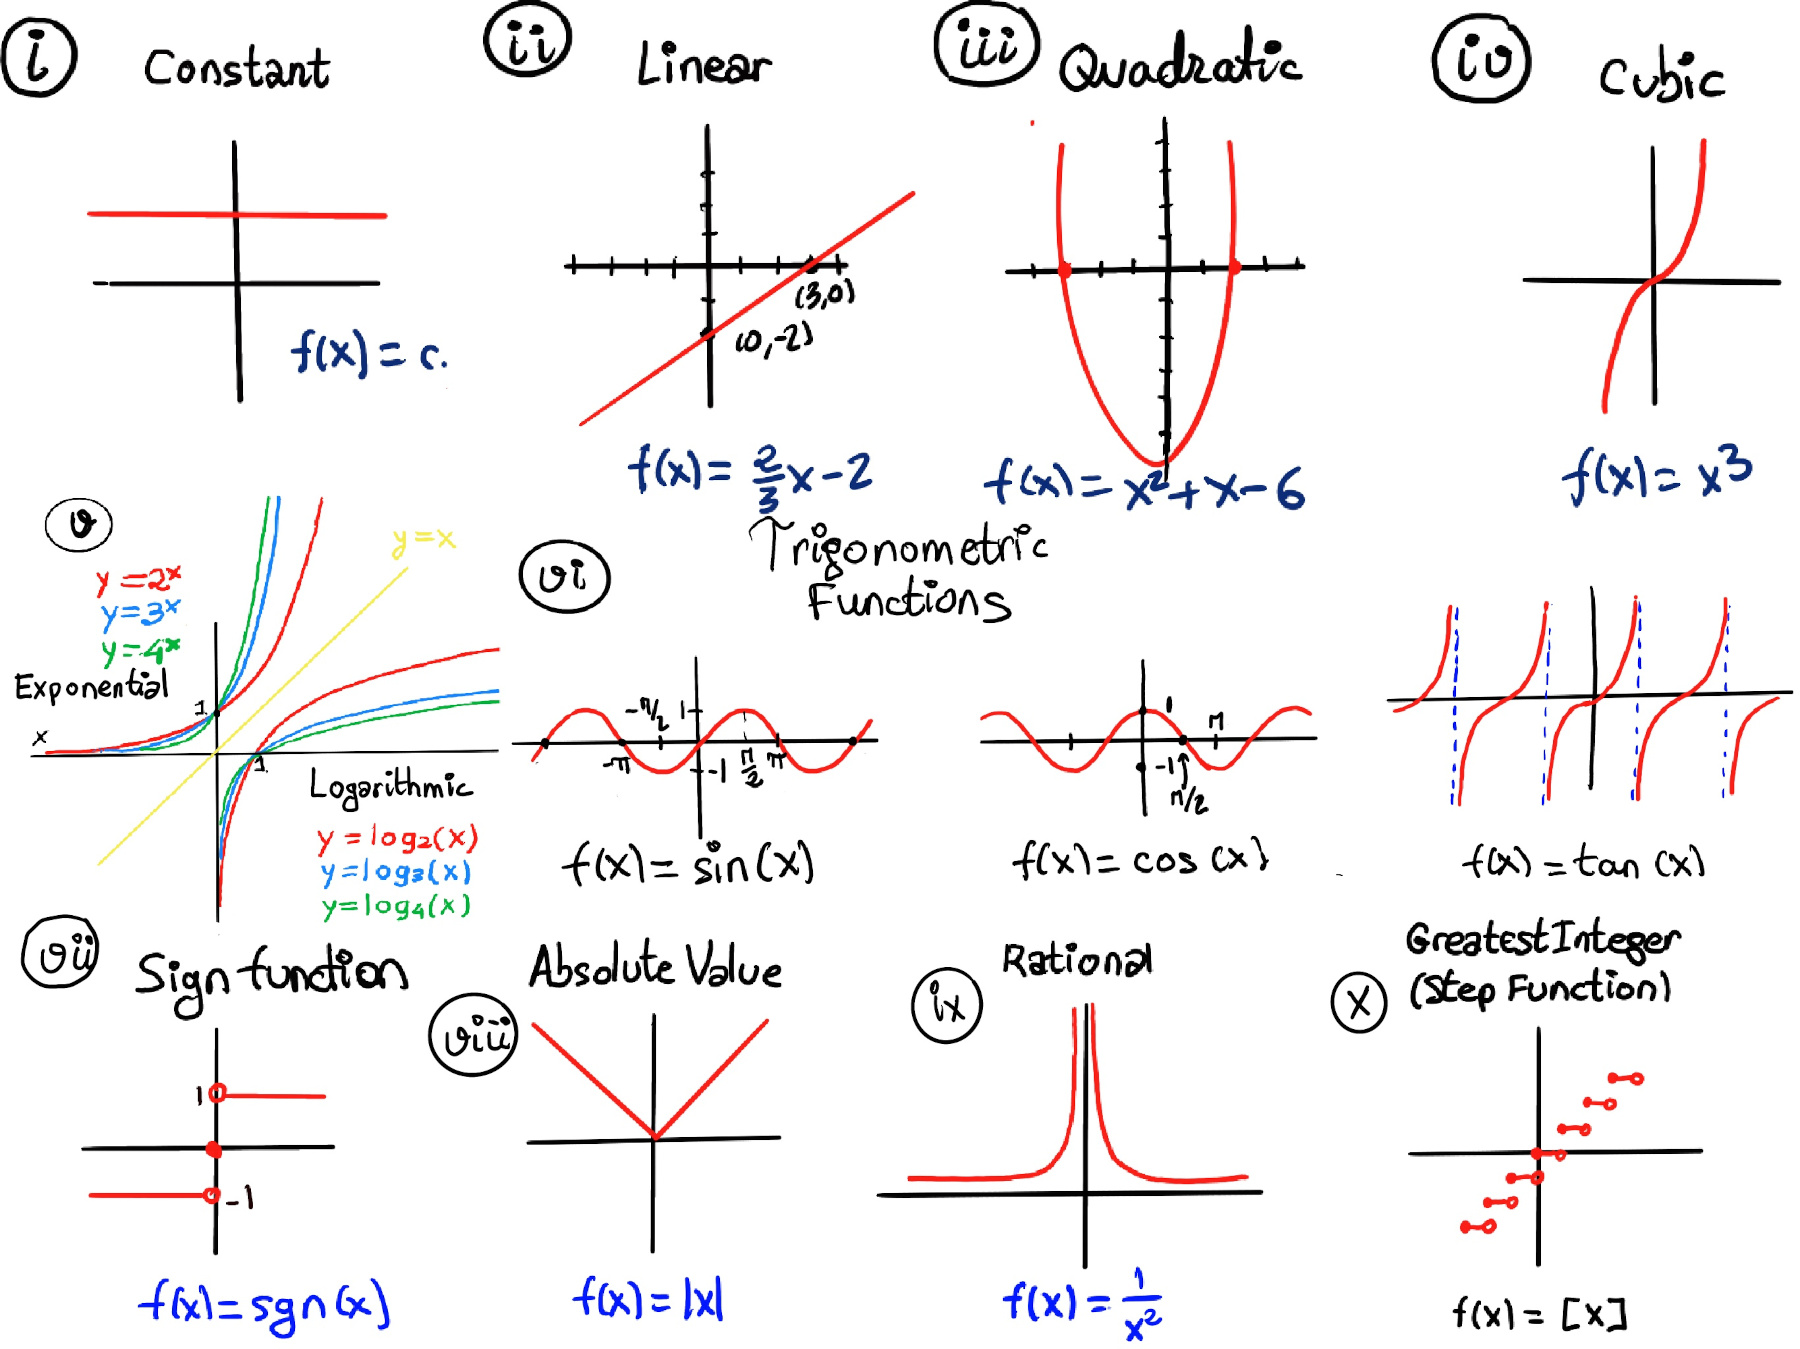 i Constant
ii Linear
iii Quadratic
iv Cubic
f(x) = c.
(3,0)
(0,-2)
f(x) = 2/3 x - 2
f(x) = x² + x - 6
f(x) = x³
v
y = 2ˣ
y = 3ˣ
y = 4ˣ
Exponential
y = x
1
x
1
Logarithmic
y = log₂(x)
y = log₃(x)
y = log₄(x)
vi Trigonometric
Functions
-π/2 1
-π -1 π/2 π
f(x) = sin(x)
1 π
-1 π/2
f(x) = cos(x)
f(x) = tan(x)
vii Sign function
1
-1
f(x) = sgn(x)
viii Absolute Value
f(x) = |x|
ix Rational
f(x) = 1/x²
x Greatest Integer
(Step Function)
f(x) = [x]